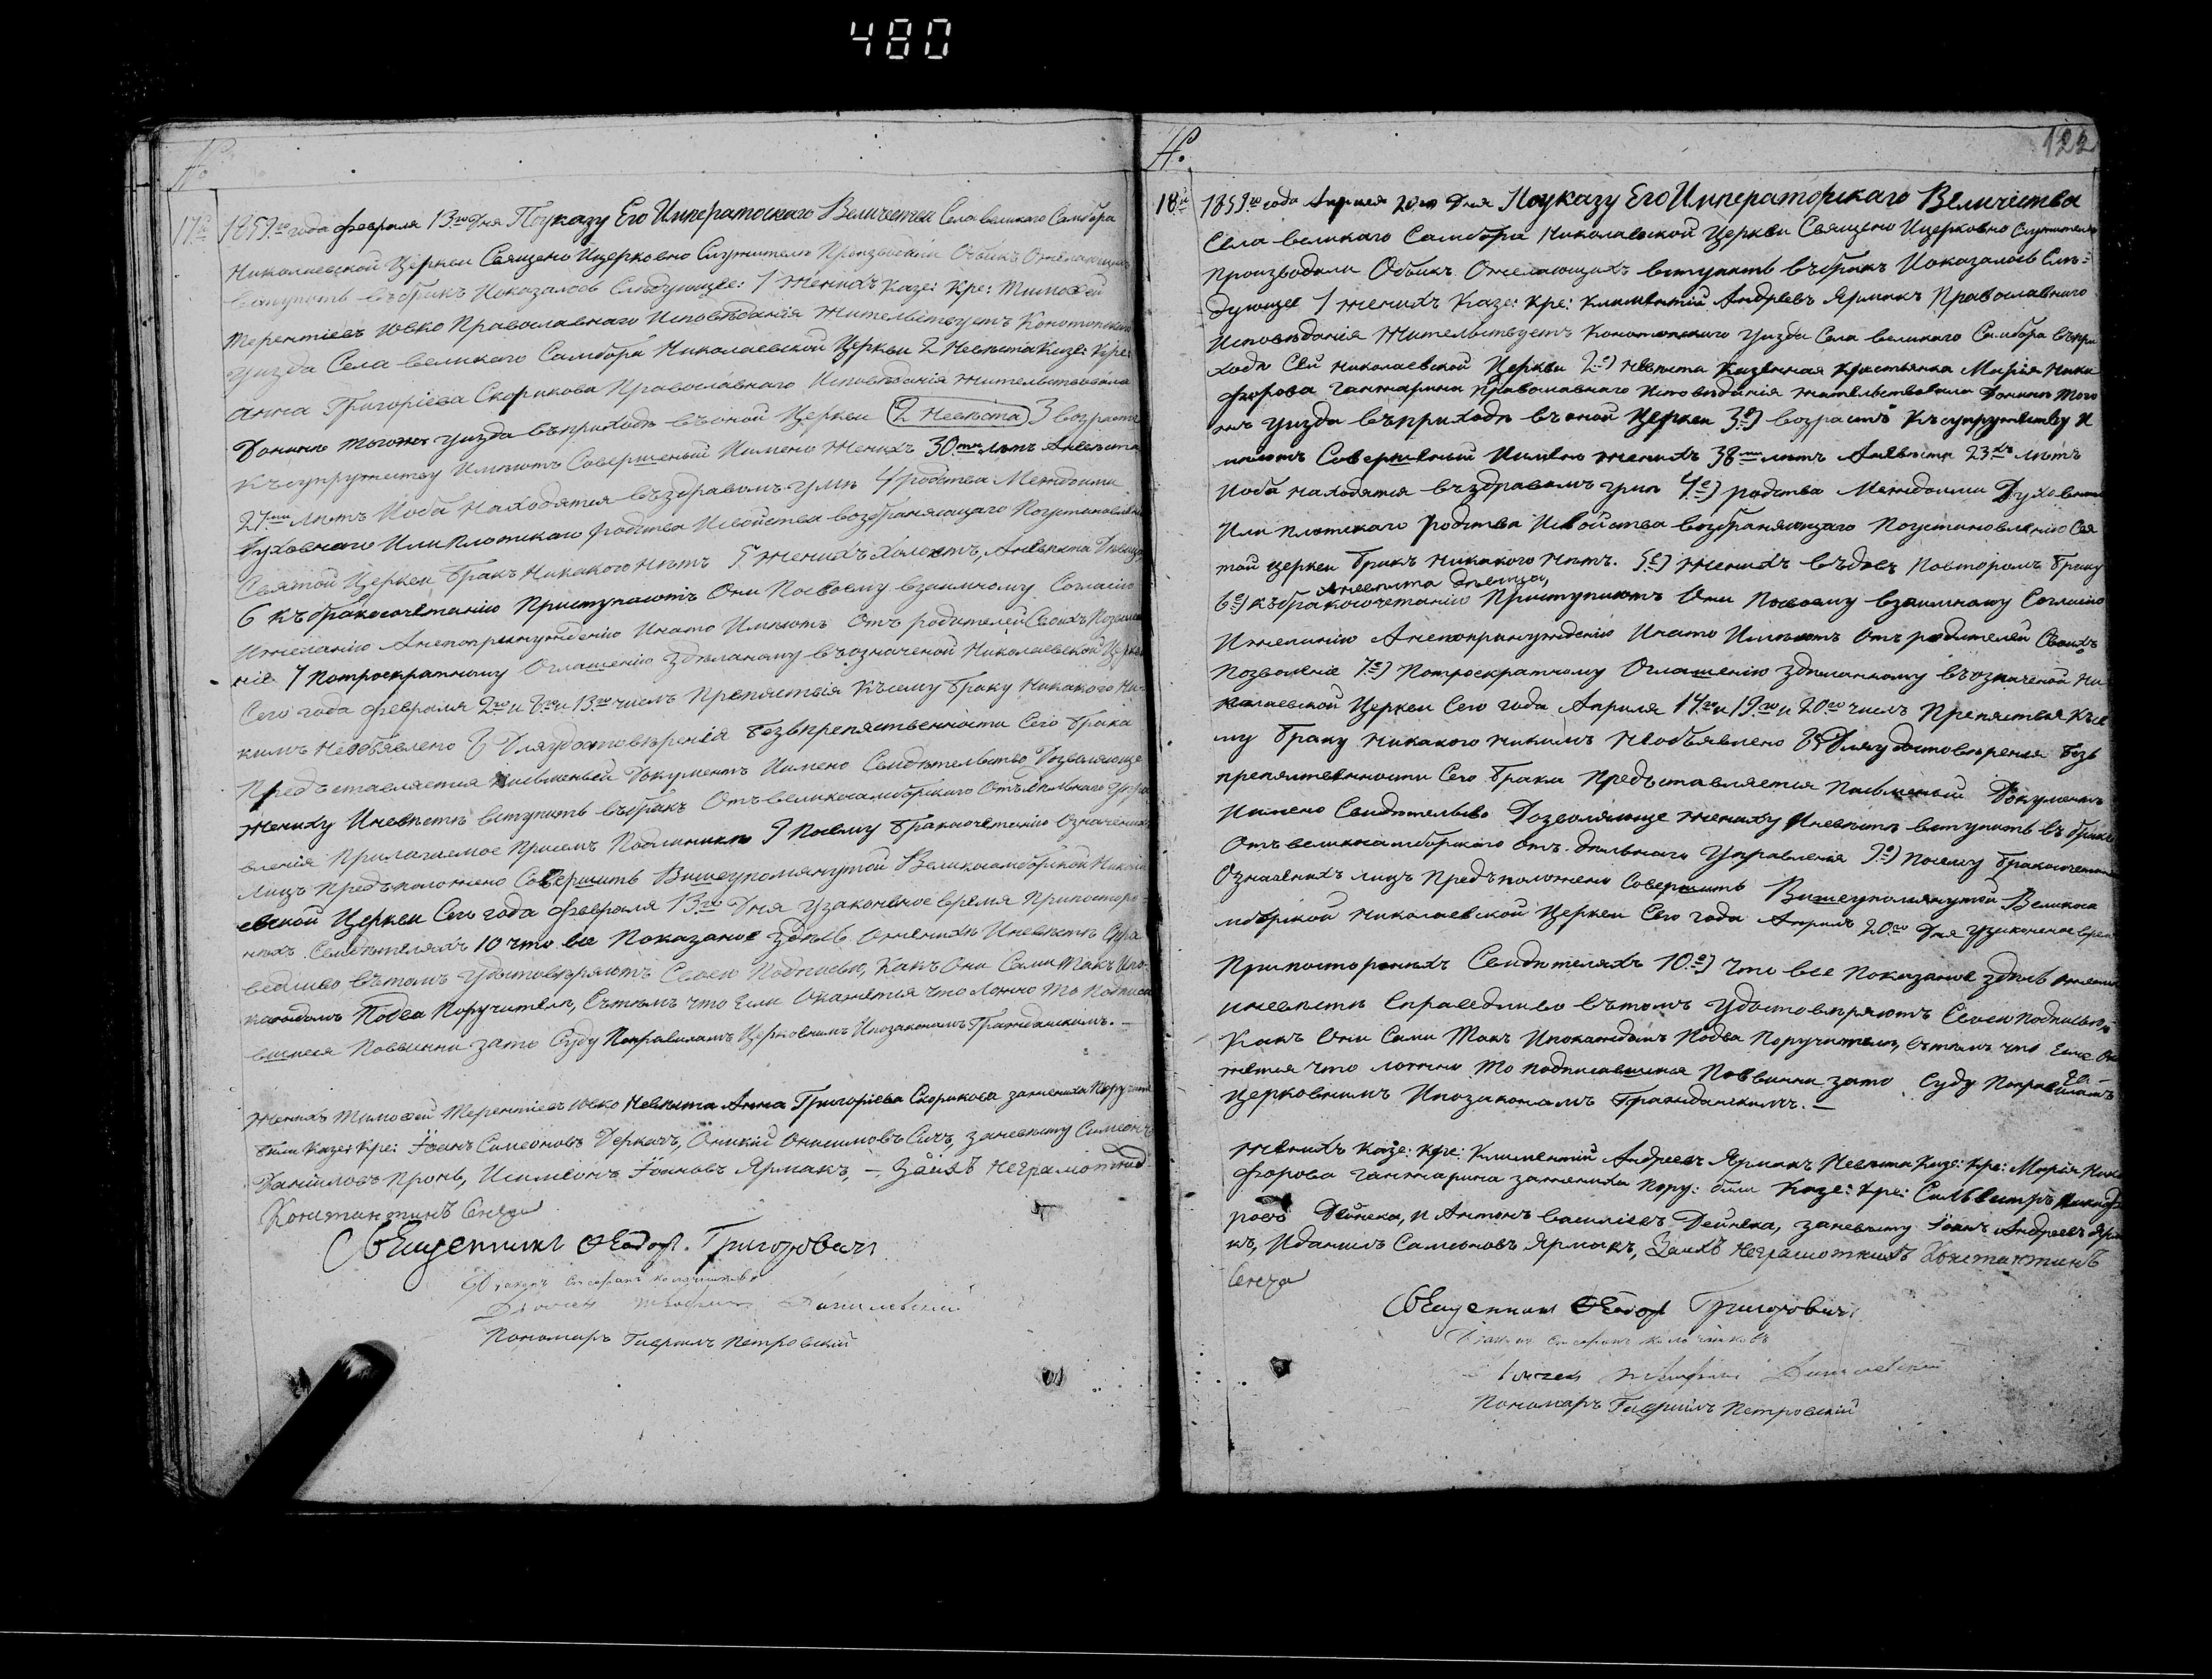 480
№
17й
1859го года февраля 13го дня Поуказу Его Императоскаго Величества Села великаго Самбора
Николаевской Церкви Священо Ицерковно Служители Производили Обыскъ Ожелающихъ
вступить въбракъ Иоказалось Следующее: 1 Женихъ Казе: Кре: Тимофей
Терентіевъ Ювко Православнаго Исповѣданія Жительствуетъ Конотопскаго
Уизда Села великаго Самбора Николаевской Церкви 2 Невѣста Казе: Кре:
Анна Григоріева Скорикова Православнаго Исповѣданія Жительствовала
Донинѣ тогожъ уизда въприходѣ въоной Церкви (2 Невѣста) 3 возрастъ
Къ супружеству Имѣютъ Совершеный Иимено Женихъ 30ти лѣтъ Аневѣста
27ми лѣтъ Иоба Находятся въздравомъ умѣ 4 родства Междоими
Духовнаго Или Плотскаго родства Исвойства возбраняющаго Поустановленію
Святой Церкви бракъ Никакого нѣтъ 5 Женихъ Холостъ, Аневѣста Дѣвица
6 Къбракосочетанію Приступаютъ Они Посвоему взаимному Согласію
Ижеланію Анепопринужденію Инато Имѣютъ Отъ родителей Своихъ Позволе
ніе 7 Потроекратному Оглашенію здѣланому въозначеной Николаевской Церкви
Сего года февраля 2го и 8го и 13го числъ Препятствія Късему браку Никакого Ни-
кимъ Необъявлено 8 Дляудостовѣренія безъпрепятственности Сего брака
Предъставляется Писменый Документъ Иимено Свидѣтельство Дозволяюще
Жениху Иневѣстѣ вступить въбракъ Отъ великосамборскаго Отъдѣльнаго Упра
вленія Прилагаемое Присемъ Подлиникѣ 9 Посему бракосочетанію Означеныхъ
Лицъ Предъположено Совершить Вишеупомянутой Великосамборской Никола
евской Церкви Сего года февраля 13го Дня узаконеное время Припосторо
нихъ Свидѣтеляхъ 10 что все Показаное здѣсь Ожениху Иневѣстѣ Спра
ведливо вътомъ удостовѣряютъ Своею Подписью, Какъ Они Сами такъ Ипо-
каждомъ Подва Поручителя, Сътѣмъ что Если Окажется что Ложно То Подписа
вшиеся Повинни зато Суду Поправиламъ Церковнимъ Ипозаконамъ Гражданскимъ. —
Женихъ Тимофей Терентіевъ Ювко Невѣста Анна Григоріева Скорикова зажениха Поручит
били Казе: Кре: Іоанъ Симеоновъ Деркачъ, Оникій Онисимовъ Сичъ, заневѣсту Симеонъ
Даніиловъ Пронь, Исимеонъ Іоановъ Ярмакъ, — Заихъ Неграмотнихъ
Константинъ Сенеза
Священникъ Феодоръ Григоровичъ
Діаконъ Стефанъ
Данилевскій
Пономаръ Гавріилъ Петровскій
№
122
18й
1859го года Апреля 20го Дня Поуказу Его Императорскаго Величества
Села великаго Самбора Николаевской Церкви Священо Ицерковно Служители
Производили Обыскъ Ожелающихъ вступить въбракъ Иоказалось Слѣ-
дующее 1 Женихъ Казе: Кре: Климентій Андреевъ Ярмакъ Православнаго
Исповѣданія Жительствуетъ Конотопскаго Уизда Села великаго Самбора въпри
ходѣ Сей Николаевской Церкви 2е) Невѣста Казенная Крестьянка Марія Ники
форова Ганжарина Православнаго Исповѣданія Жительствовала Донинѣ того
жъ Уизда въприходѣ въоной Церкви 3е) возрастъ Късупружеству И
мѣютъ Совершеный Иимено Женихъ 38ми лѣтъ Аневѣста 23хъ лѣтъ
Иоба Находятся въздравомъ умѣ 4е) родства Междоими Духовнаго
Или Плотскаго родства Исвойства возбраняющаго Поустановленію Свя
той Церкви бракъ Никакого Нѣтъ. 5е) Женихъ въдовъ Повторомъ браку
Аневѣста Дѣвица,
6е) Къбракосочетанію Приступаютъ Они Посвоему взаимному Согласію
Ижеланію Анепопринужденію Инато Имѣютъ Отъ родителей Своихъ
Позволеніе 7е) Потроекратному Оглашенію здѣланному въозначеной Ни-
колаевской Церкви Сего года Апреля 14го и 19го и 20го числъ Препятствія Късе
му браку Никакого Никимъ Необъявлено 8е) Дляудостовѣренія безъ
препятственности Сего брака Предъставляется Письменый Документъ
Иимено Свидѣтельство Дозволяюще Жениху Иневѣстѣ вступить въ бракъ
Отъ великосамборскаго отъ. дѣльнаго Управленія 9е) Посему бракосочетанію
Означенихъ лицъ Предъположено Совершить Вишеупомянутой Великоса
мборской Николаевской Церкви Сего года Апреля 20го Дня узаконеное время
Припосторонихъ Свидѣтеляхъ 10е) Что все Показаное здѣсь Ожениху
иневѣстѣ Справедливо вътомъ Удостовѣряютъ Своею Подписью,
Какъ Они Сами Такъ Ипокаждомъ Подва Поручителя, сътѣмъ что Если Ока
жется что ложно То подписавшиеся Повинни зато Суду Поправиламъ
Церковнимъ Ипозаконамъ Гражданскимъ. —
Женихъ Казе: Кре: Климентій Андреевъ Ярмакъ Невѣста Казе: Кре: Марія Ники
форова Ганжарина зажениха Пору: били Казе: Кре: Сильвестръ Никифо
ровъ Дейнека, и Антонъ Василіевъ Дейнека, заневѣсту Іоанъ Андреевъ Ярма
къ, Иданиилъ Симеоновъ Ярмакъ, Заихъ Неграмотнихъ Константинъ
Сенеза
Священникъ Феодоръ Григоровичъ
Стефанъ
Данилевскій
Пономаръ Гавріилъ Петровскій